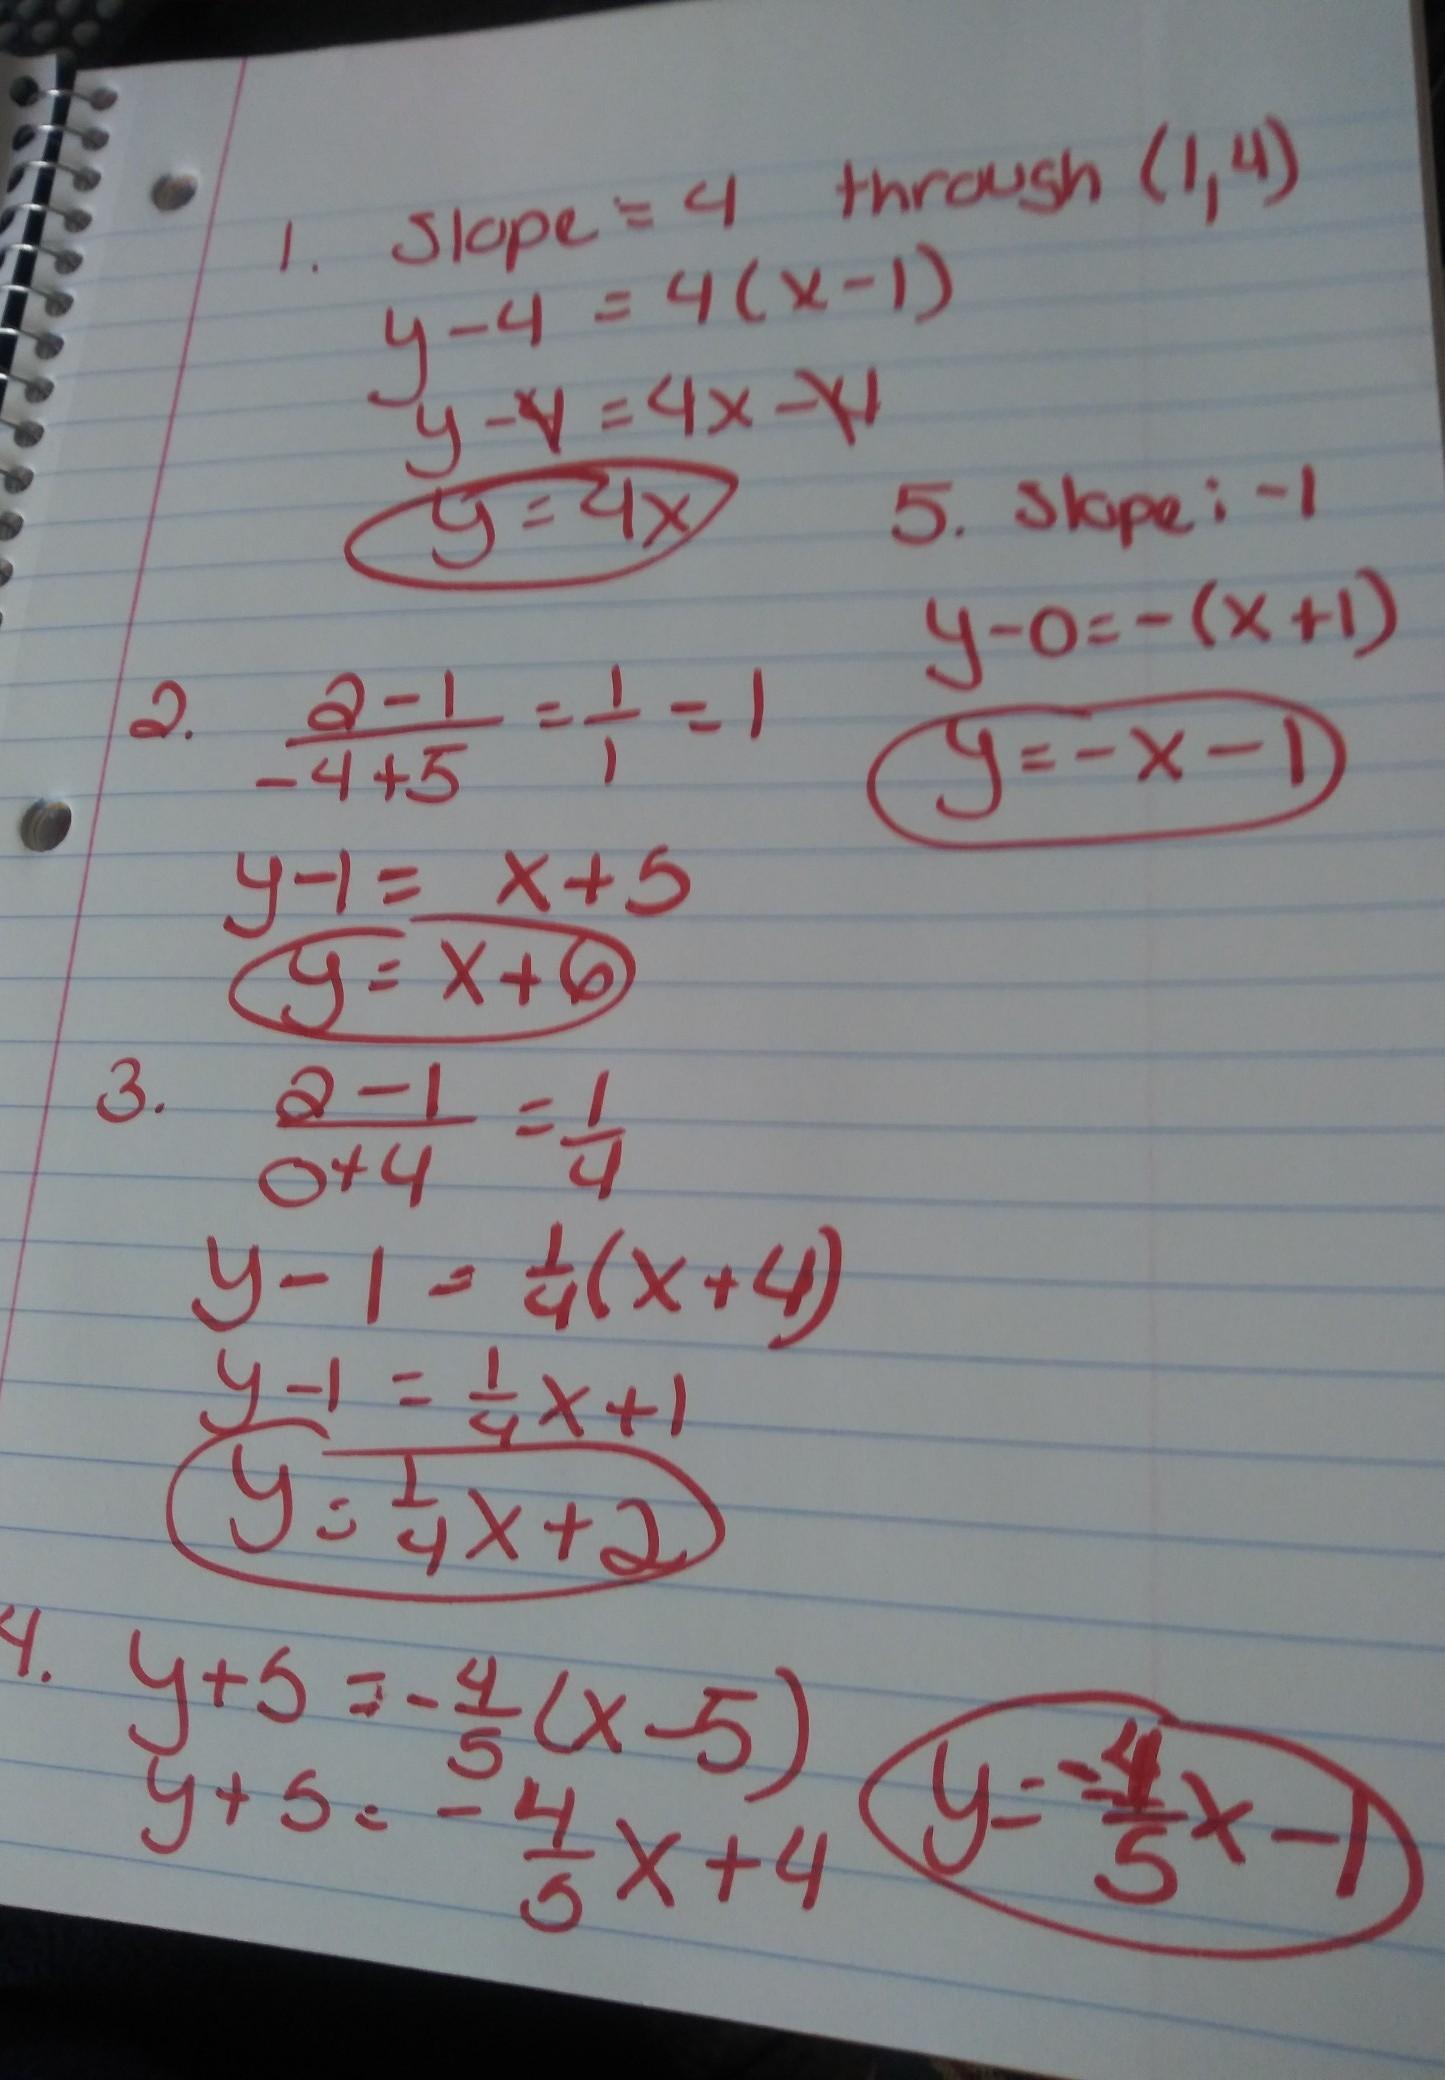 1. Slope = 4 through (1,4)
y - 4 = 4(x - 1)
y - 4 = 4x - 4
y = 4x
2. 2 - 1 / -4 + 5 = 1/1 = 1
y - 1 = x + 5
y = x + 6
3. 2 - 1 / 0 + 4 = 1/4
y - 1 = 1/4(x + 4)
y - 1 = 1/4x + 1
y = 1/4x + 2
4. y + 5 = -4/5(x - 5)
y + 5 = -4/5x + 4
y = -4/5x - 1
5. Slope: -1
y - 0 = -(x + 1)
y = -x - 1